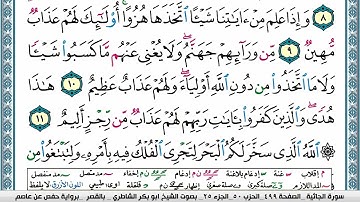 ٨ وَإِذَا عَلِمَ مِنْ ءَايَٰتِنَا شَيْـًٔا ٱتَّخَذَهَا هُزُوًا ۚ أُو۟لَٰٓئِكَ لَهُمْ عَذَابٌ
مُّهِينٌ ٩ مِّن وَرَآئِهِمْ جَهَنَّمُ ۖ وَلَا يُغْنِى عَنْهُم مَّا كَسَبُوا۟ شَيْـًٔا
وَلَا مَا ٱتَّخَذُوا۟ مِن دُونِ ٱللَّهِ أَوْلِيَآءَ ۖ وَلَهُمْ عَذَابٌ عَظِيمٌ ١٠ هَٰذَا
هُدًى ۖ وَٱلَّذِينَ كَفَرُوا۟ بِـَٔايَٰتِ رَبِّهِمْ لَهُمْ عَذَابٌ مِّن رِّجْزٍ أَلِيمٌ ١١
ٱللَّهُ ٱلَّذِى سَخَّرَ لَكُمُ ٱلْبَحْرَ لِتَجْرِىَ ٱلْفُلْكُ فِيهِ بِأَمْرِهِۦ وَلِتَبْتَغُوا۟ مِن
سورة الجاثية . الصفحة ٤٩٩ . الحزب ٥٠ . الجزء ٢٥ . بصوت الشيخ ابو بكر الشاطري . بالقصر . برواية حفص عن عاصم